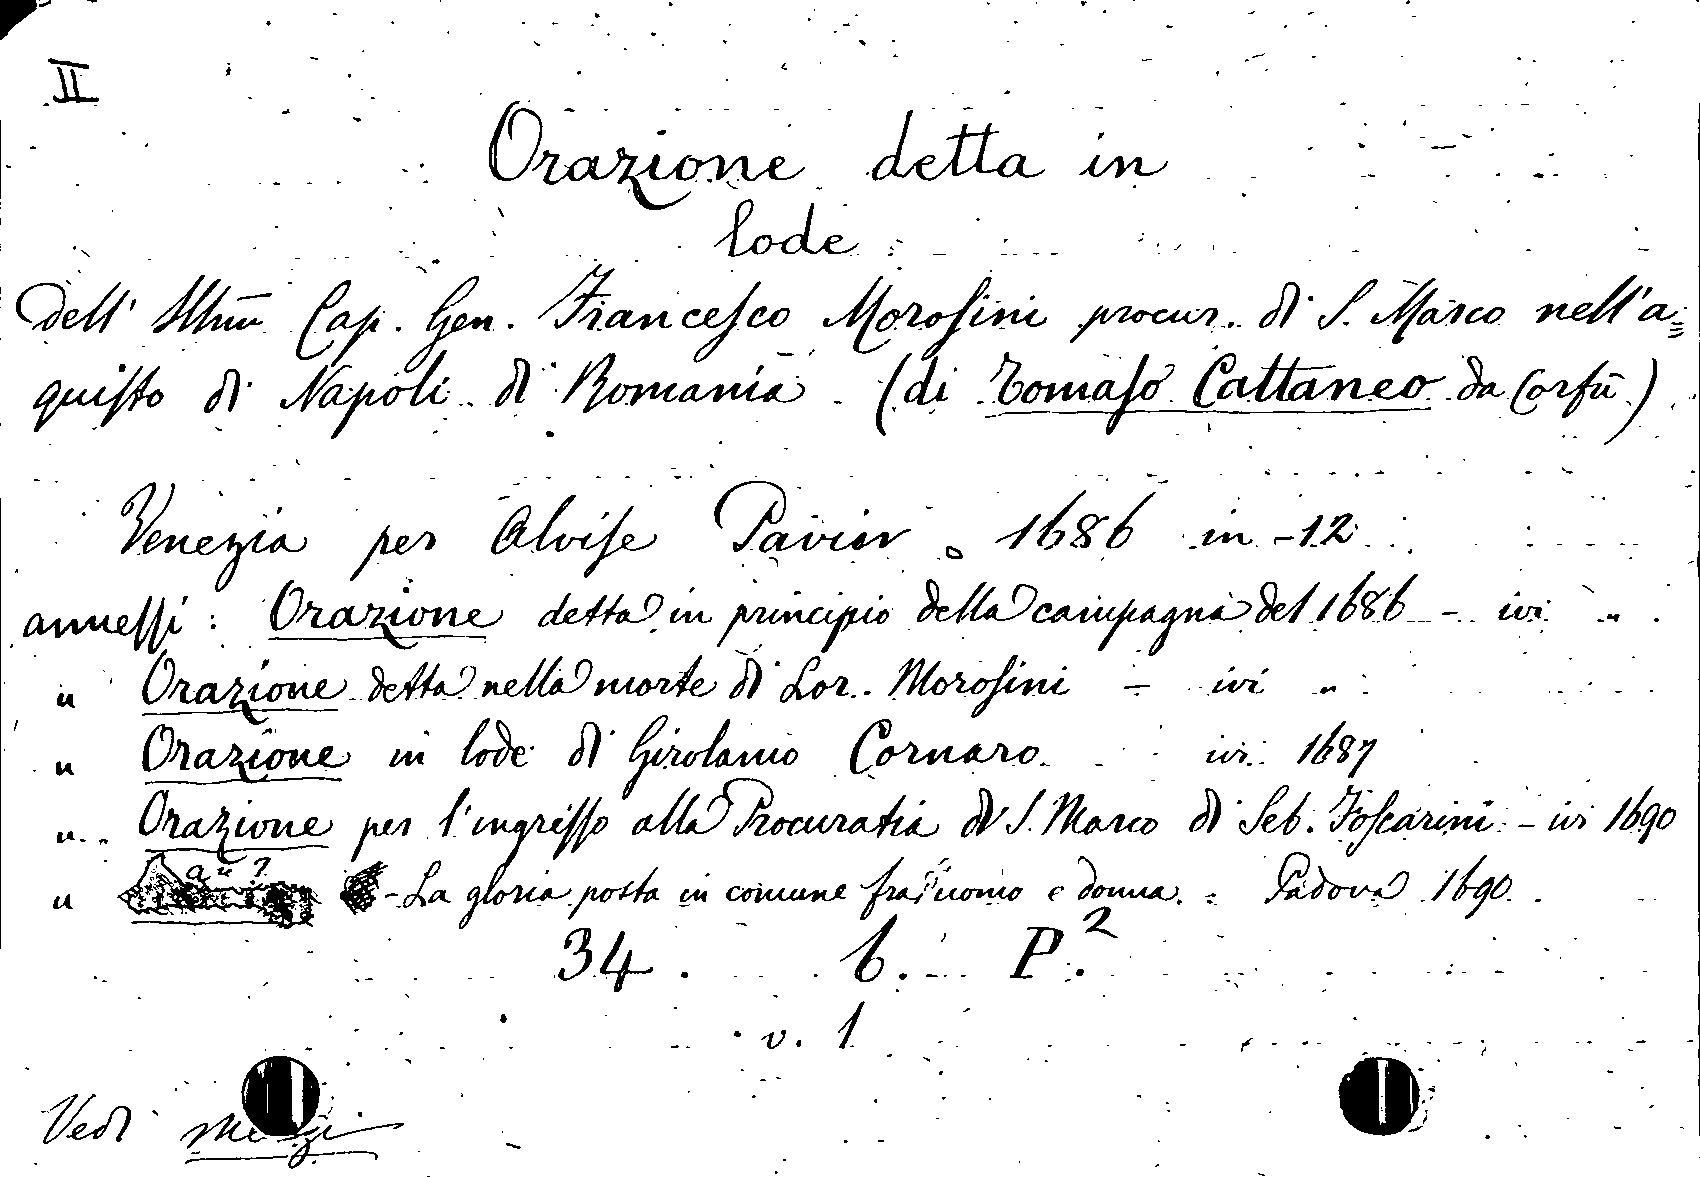 II
Orazione detta in
lode
dell' Illmo Cap. Gen. Francesco Morosini procur. di S. Marco nell'a=
quisto di Napoli di Romania (di Tomaso Cattaneo da Corfù)
Venezia per Alvise Pavin. 1686 in-12
annessi: Orazione detta in principio della campagna del 1686 - ivi "
" Orazione detta nella morte di Lor. Morosini - ivi "
" Orazione in lode di Girolamo Cornaro ivi 1687
" Orazione per l'ingresso alla Procuratia di S. Marco di Seb. Foscarini - ivi 1690
" - La gloria posta in comune fra uomo e donna. = Padova 1690.
34. b. P.2
v. 1
Vedi